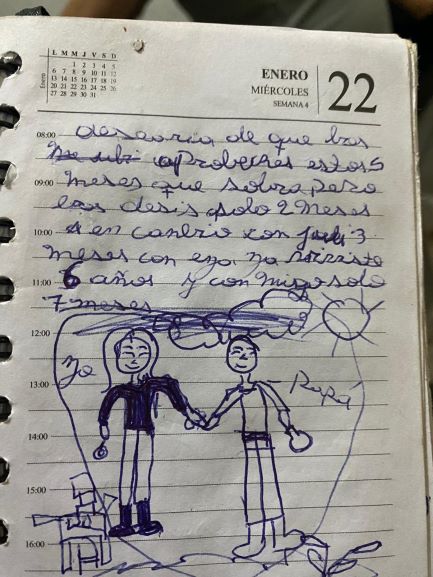 L M M J V S D
1 2 3 4 5
6 7 8 9 10 11 12
13 14 15 16 17 18 19
20 21 22 23 24 25 26
27 28 29 30 31
Enero
ENERO
MIÉRCOLES
SEMANA 4
22
08:00 desearia de que
aprobeches estos 5
09:00 meses que sobra pero
solo 2 meses
10:00 en canbio con 3
meses con eya ya
11:00 6 años y con migo solo
7 meses
12:00
yo
13:00 Papá
14:00
15:00
16:00